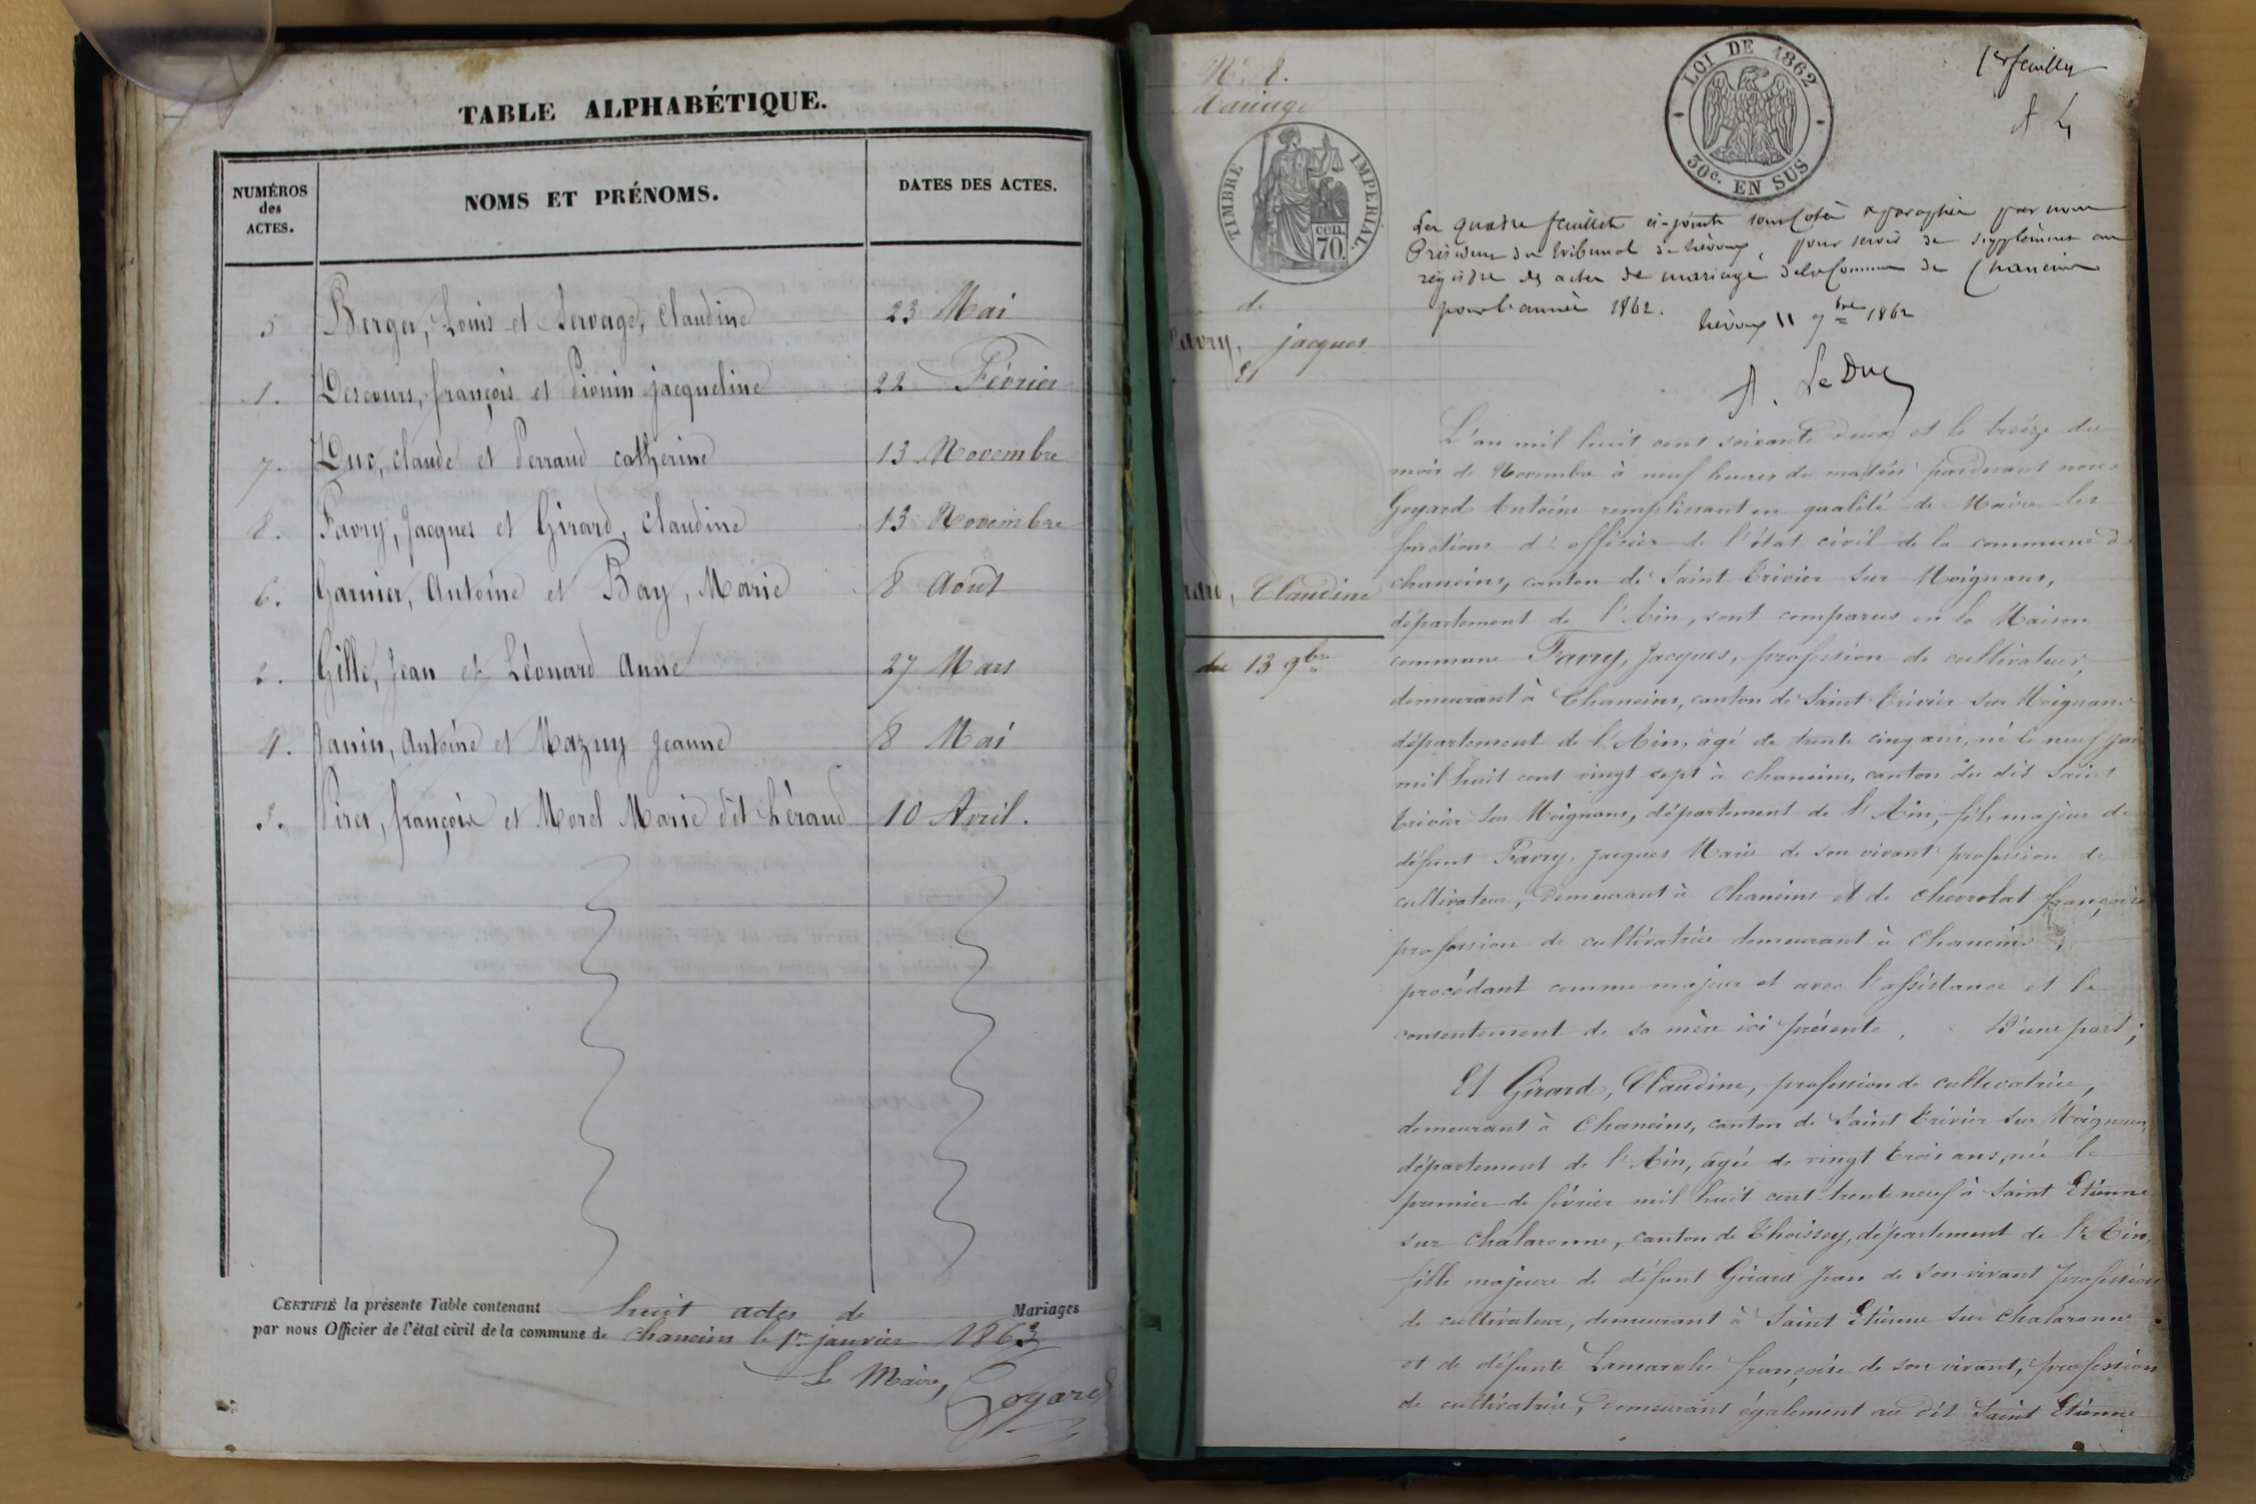 TABLE ALPHABÉTIQUE.
NUMÉROS
des
ACTES.
NOMS ET PRÉNOMS.
DATES DES ACTES.
5 Berger, Louis et Servage, Claudine 23 Mai
1. Descours, françois et Pionin jacqueline 22 Février
7. Duc, claude et Perraud catherine 13 Novembre
8. Favry, Jacques et Girard, Claudine 13 Novembre
6. Garnier, Antoine et Bay, Marie 8 Aout
2. Gille, Jean et Léonard Anne 27 Mars
4. Janin, Antoine et Mazuy Jeanne 8 Mai
3. françois et Morel Marie dit héraud 10 Avril.
CERTIFIÉ la présente Table contenant huit actes de Mariages
par nous Officier de l'état civil de la commune de chaneins le 1er janvier 1863
Le Maire,
Goyard
N° 8.
Mariage
TIMBRE IMPÉRIAL.
CEN.
70.
de
Favry, jacques
Et
Claudine
du 13 9bre
LOI DE 1862
50c. EN SUS
1er feuillet
A L
Les quatre feuillets ci-joints sont cotés & paraphés par nous
Président du tribunal de trévoux pour servir de supplément au
registre des actes de mariage de la Commune de Chaneins
pour l'année 1862.
trévoux 11 9bre 1862
A. Le Duc
L'an mil huit cent soixante deux et le treize du
mois de Novembre à neuf heures du matin pardevant nous
Goyard Antoine remplissant en qualité de Maire les
fonctions d'officier de l'état civil de la commune de
chaneins, canton de Saint trivier sur Moignans,
département de l'Ain, sont comparus en la Maison
commune Favry, Jacques, profession de cultivateur,
demeurant à Chaneins, canton de Saint trivier sur Moignans
département de l'Ain, âgé de trente cinq ans, né le neuf
mil huit cent vingt sept à chaneins, canton du dit Saint
trivier sur Moignans, département de l'Ain, fils majeur de
défunt Favry, Jacques Marie de son vivant profession de
cultivateur, demeurant à chaneins et de chevrolat françoise
profession de cultivatrice demeurant à chaneins,
procédant comme majeur et avec l'assistance et le
consentement de sa mère ici présente, D'une part;
Et Girard, Claudine, profession de cultivatrice,
demeurant à Chaneins, canton de Saint trivier sur Moignans,
département de l'Ain, âgée de vingt trois ans, née le
premier de février mil huit cent trente neuf à Saint Etienne
sur chalaronne, canton de Thoissey, département de l'Ain,
fille majeure de défunt Girard Jean de son vivant profession
de cultivateur, demeurant à Saint Etienne sur chalaronne
et de défunte Lamarche françoise de son vivant, profession
de cultivatrice, demeurant également au dit Saint Etienne